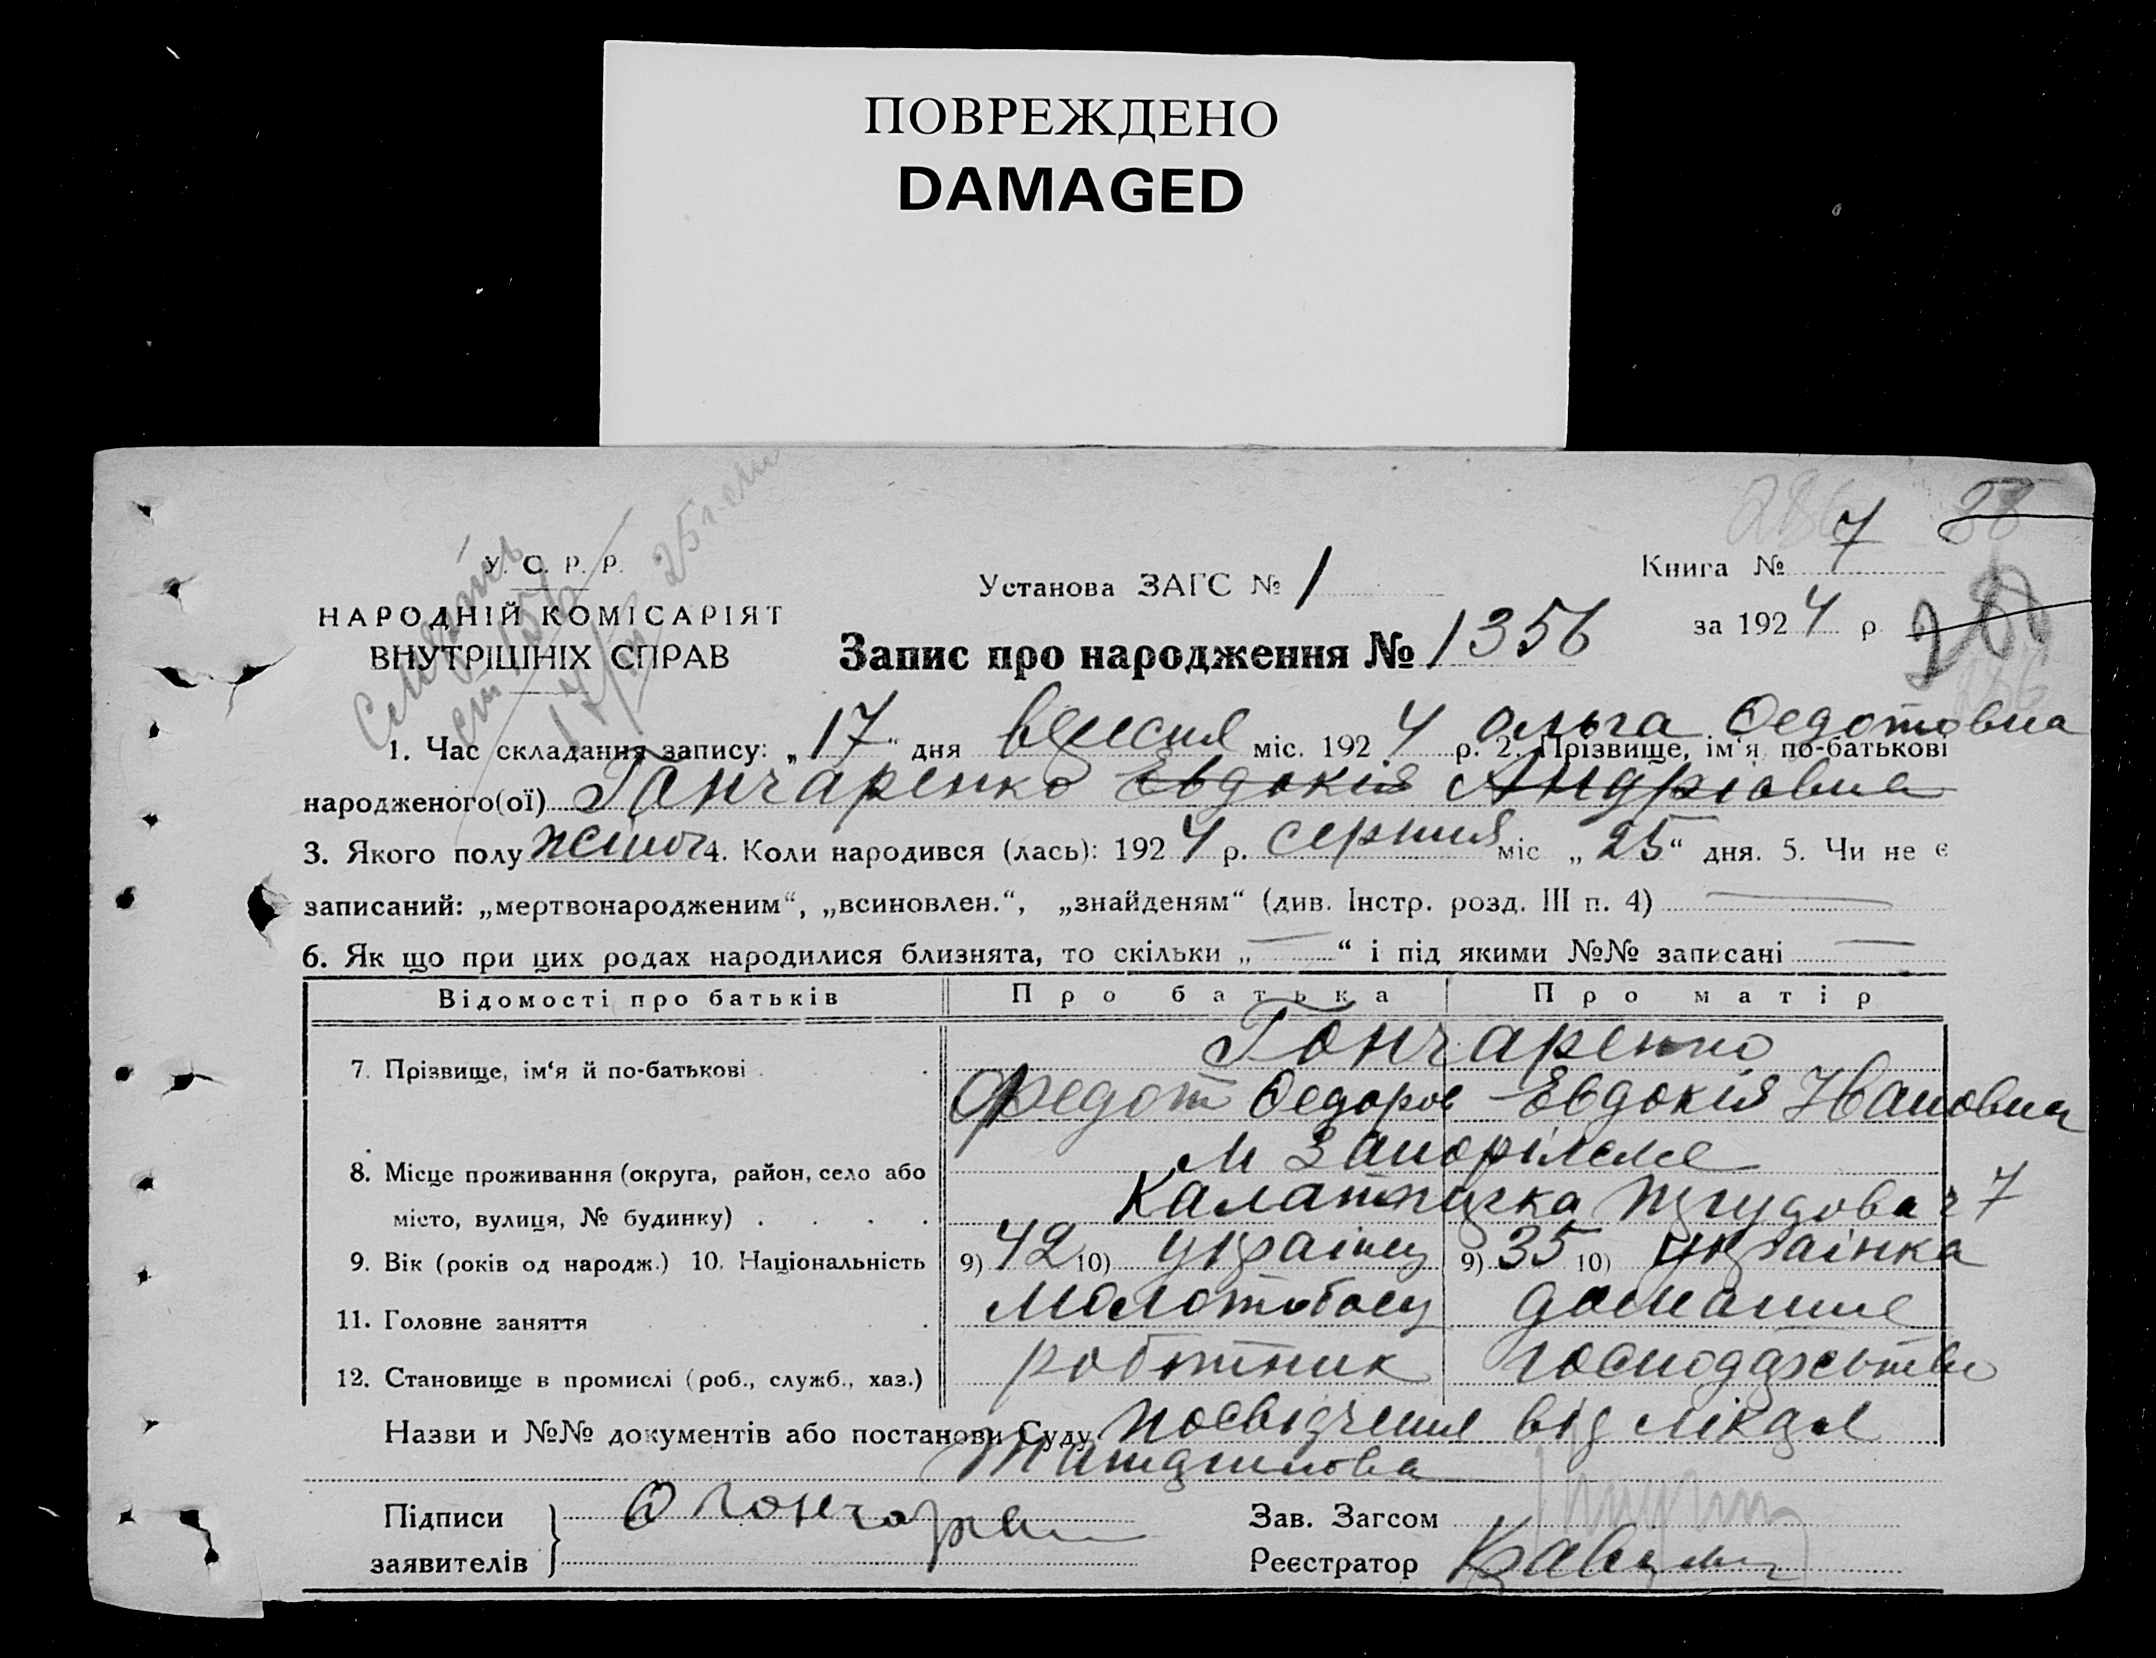 ПОВРЕЖДЕНО
DAMAGED
У. С. Р. Р.
НАРОДНІЙ КОМІСАРІЯТ
ВНУТРІШНІХ СПРАВ
Установа ЗАГС № 1
Книга № 7
за 1924 р
Запис про народження № 1356
Ольга Федотовна
1. Час складання запису: „17“ дня вересня міс. 1924 р. 2. Прізвище, ім'я по-батькові
народженого(ої) Гончаренко Евдокія Андріовна
3. Якого полу жіноч 4. Коли народився (лась): 1924 р. серпня міс „25“ дня. 5. Чи не є
записаний: „мертвонародженим“, „всиновлен.“, „знайденям“ (див. Інстр. розд. III п. 4) —
6. Як що при цих родах народилися близнята, то скільки „—“ і під якими №№ записані —
Відомості про батьків Про батька Про матір
Гончаренко
7. Прізвище, ім'я й по-батькові Федот Федоров Евдокія Ивановна
8. Місце проживання (округа, район, село або м Запоріжже
місто, вулиця, № будинку) 7
9. Вік (років од народж.) 10. Національність 9) 42 10) українец 9) 35 10) українка
11. Головне заняття молотобоец домашне
12. Становище в промислі (роб., служб., хаз.) роботник господарьтво
Назви и №№ документів або постанови Суду посвідчення від лікаря
Підписи
заявителів
О Гончарен
Зав. Загсом
Реєстратор